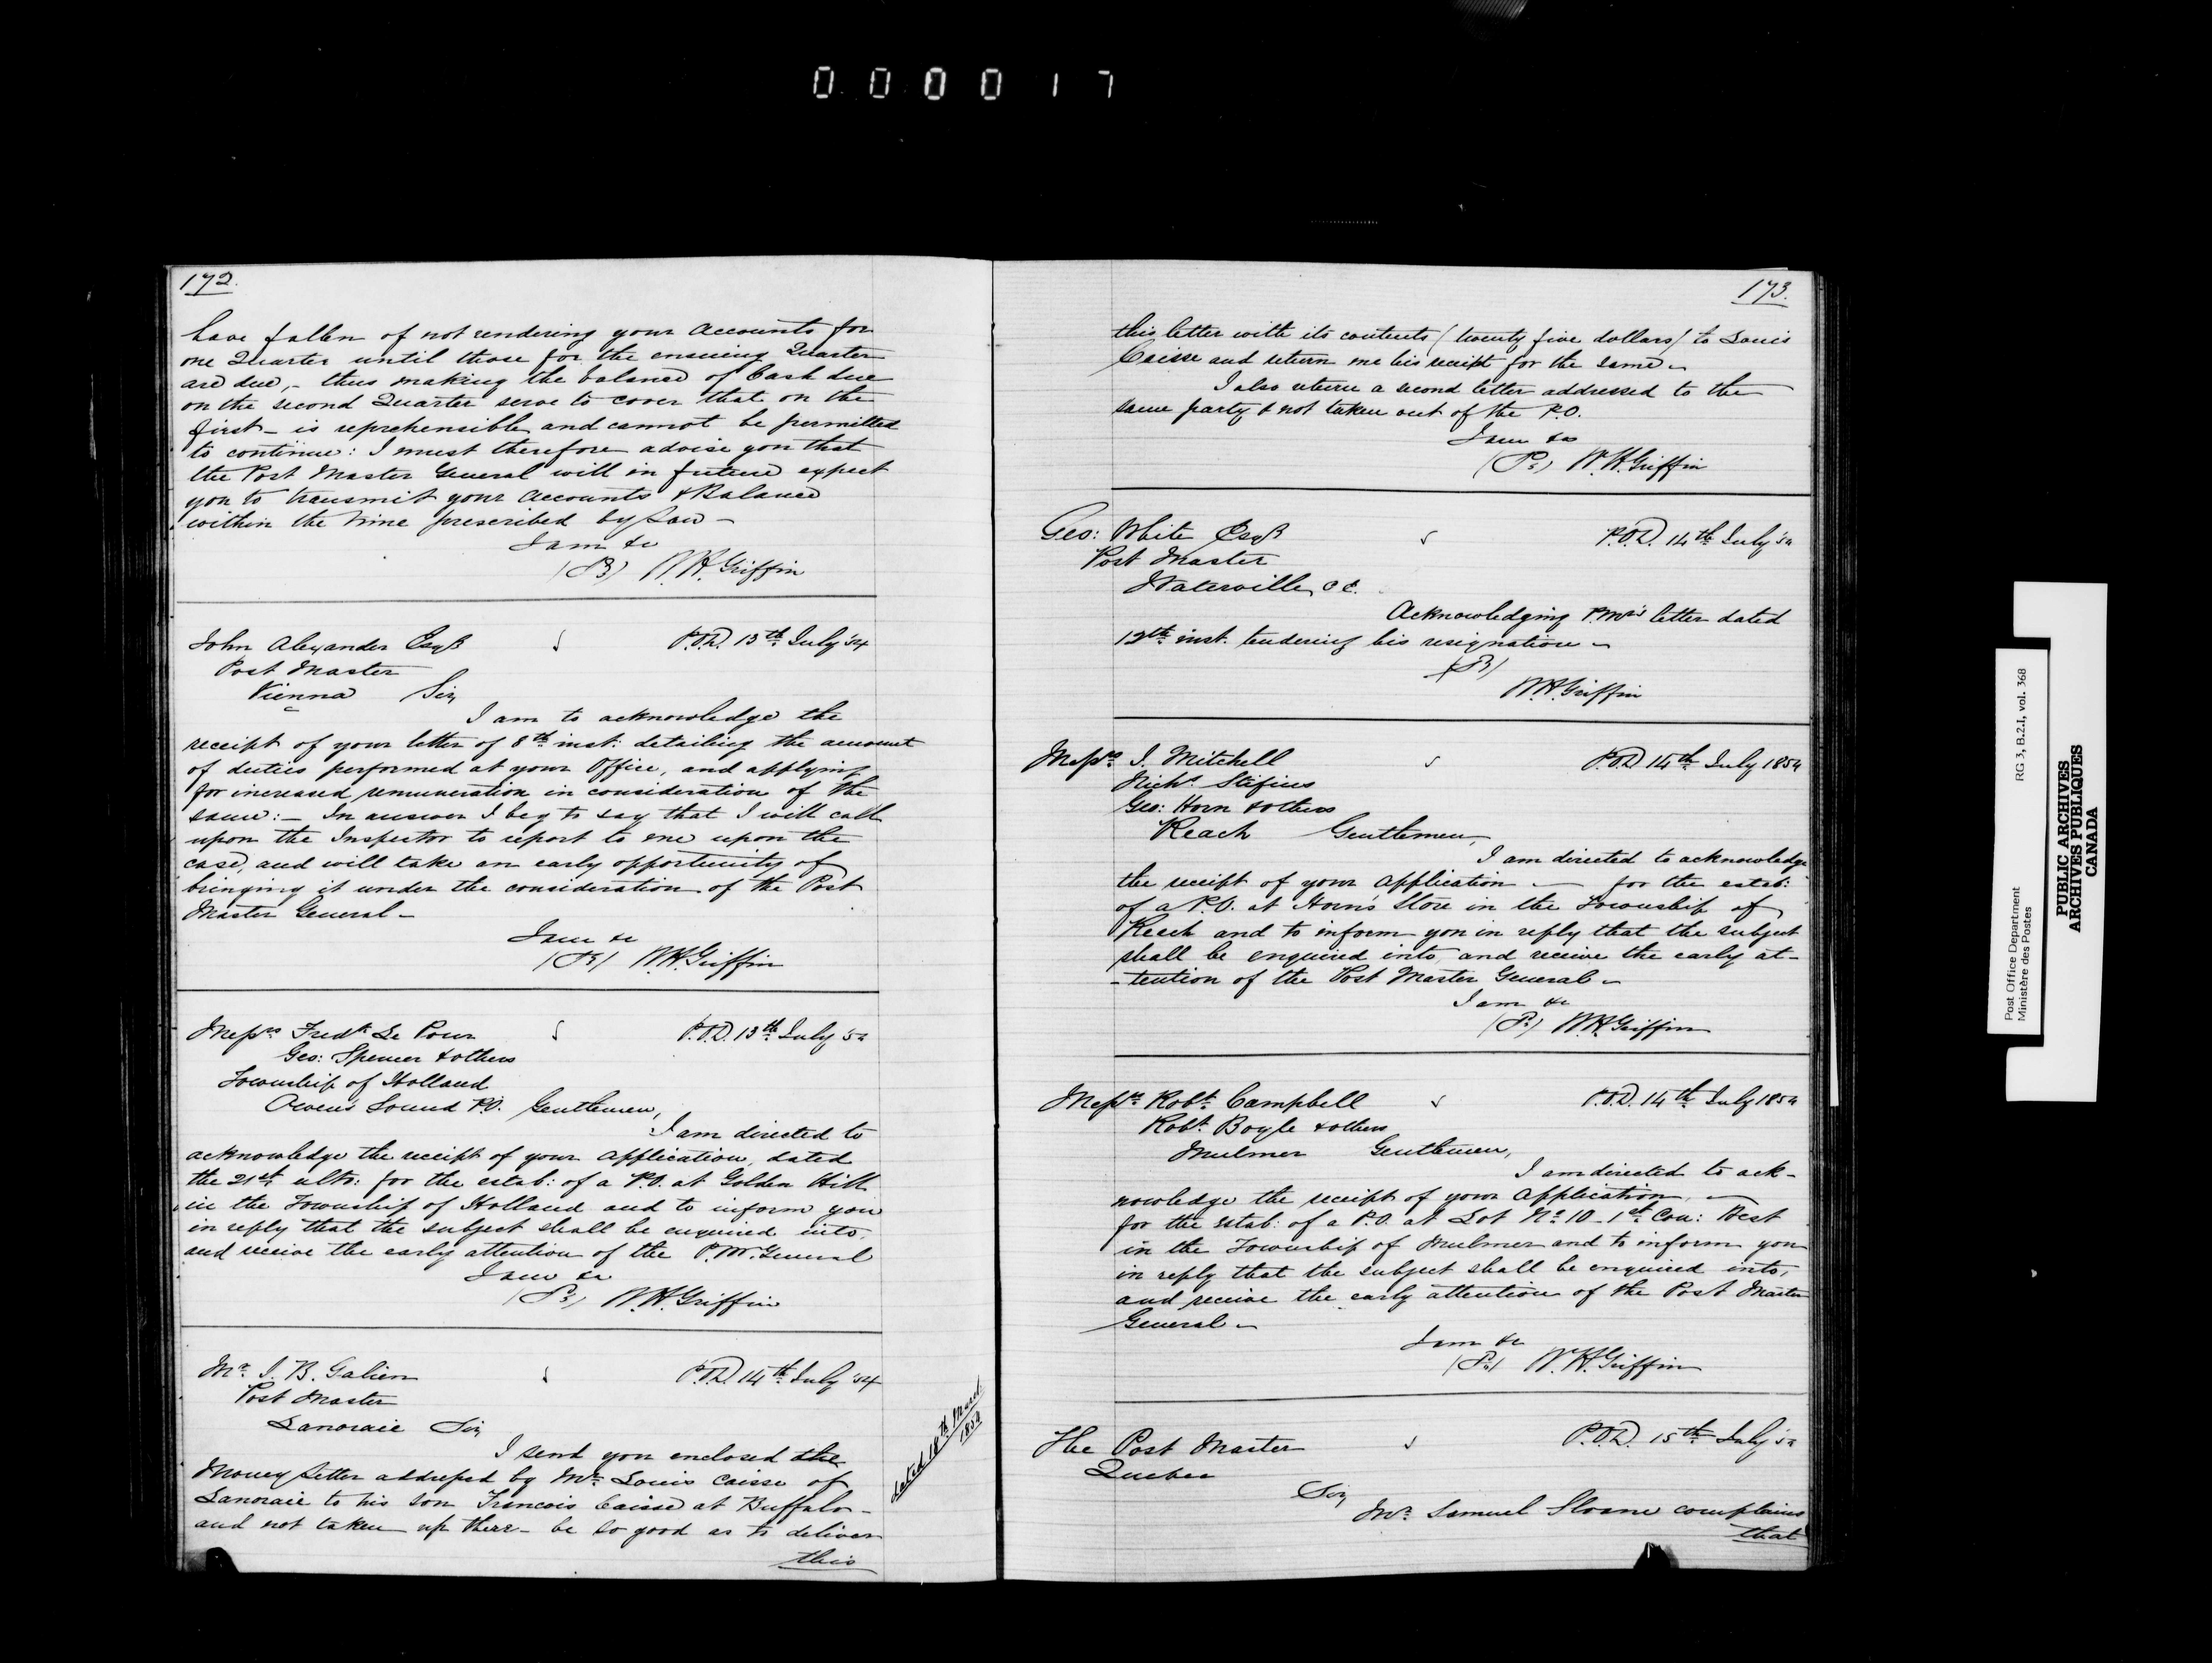 000017
172.
have fallen of not rendering your Accounts for
one Quarter until those for the ensuing Quarter
are due, - thus making the balance of Cash due
on the second Quarter serve to cover that on the
first - is reprehensible and cannot be permitted
to continue: I must therefore advise you that
the Post Master General will in future expect
you to transmit your Accounts & Balance
within the time prescribed by Law -
I am &c
W.H. Griffin
John Alexander Esqr
P.O.D. 13th July '54
Post Master
Vienna Sir,
I am to acknowledge the
receipt of your letter of 8th inst: detailing the amount
of duties performed at your Office, and applying
for increased remuneration in consideration of the
same: - In answer I beg to say that I will call
upon the Inspector to report to me upon the
case, and will take an early opportunity of
bringing it under the consideration of the Post
Master General -
I am &c
W.H. Griffin
Messrs Fredk Le Pour
P.O.D. 13th July '54
Geo: Spencer & others
Township of Holland
Owen's Sound P.O. Gentlemen,
I am directed to
acknowledge the receipt of your application, dated
the 21st ulto: for the estab: of a P.O. at Golden Hill
in the Township of Holland and to inform you
in reply that the subject shall be enquired into,
and receive the early attention of the P.M. General
I am &c
W.H. Griffin
Mr. J. B. Galien
P.O.D. 14th July '54
Post Master
Lanoraie Sir,
I send you enclosed the
Money Letter addressed by Mr. Louis Caisse of
Lanoraie to his son Francois Caisse at Buffalo -
and not taken up there - be so good as to deliver
this
dated 18th March
1854
173.
this letter with its contents (twenty five dollars) to Louis
Caisse and return me his receipt for the same -
I also return a second letter addressed to the
same party & not taken out of the P.O.
I am &c
W.H. Griffin
Geo: White Esqr
P.O.D. 14th July '54
Post Master
Waterville, C.E.
Acknowledging P.Mr's letter dated
12th inst. tendering his resignation -
W.H. Griffin
Messrs J. Mitchell
P.O.D. 14th July 1854
Nichs Stefins
Geo: Horn & others
Reach Gentlemen,
I am directed to acknowledge
the receipt of your application - for the estab:
of a P.O. at Horn's Store in the Township of
Reach and to inform you in reply that the subject
shall be enquired into, and receive the early at-
-tention of the Post Master General -
I am &c
W.H. Griffin
Messrs Robt. Campbell
P.O.D. 14th July 1854
Robt. Boyle & others
Mulmer Gentlemen,
I am directed to ack-
nowledge the receipt of your application, -
for the estab: of a P.O. at Lot No. 10 - 1st Con: West
in the Township of Mulmer and to inform you
in reply that the subject shall be enquired into,
and receive the early attention of the Post Master
General -
I am &c
W.H. Griffin
The Post Master
P.O.D. 15th July '54
Quebec
Sir,
Mr. Samuel Sloane complains
that
Post Office Department
Ministère des Postes
RG 3, B.2.I, vol. 368
PUBLIC ARCHIVES
ARCHIVES PUBLIQUES
CANADA